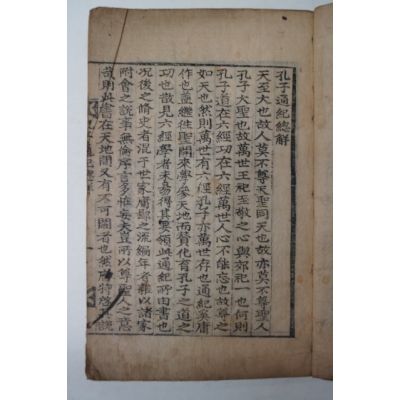 孔子通紀總解
天至大也故人莫不尊天聖同天也故亦莫不尊聖人
孔子大聖也故萬世王祀至敬之心與郊祀一也何則
孔子道在六經功在六經萬世人心不能忘也故尊之
如天也然則萬世有六經孔子亦萬世存也通紀奚庸
作也蓋繼往聖開來學參天地而贊化育孔子之道之
功也散見六經學者未易得其要領此通紀所由書也
況後之脩史者混于世家庸鄙之流編年者雜以諸家
附會之說事無倫序言多
所以尊聖人之意
哉則此書在天地間又有不可闕者也然